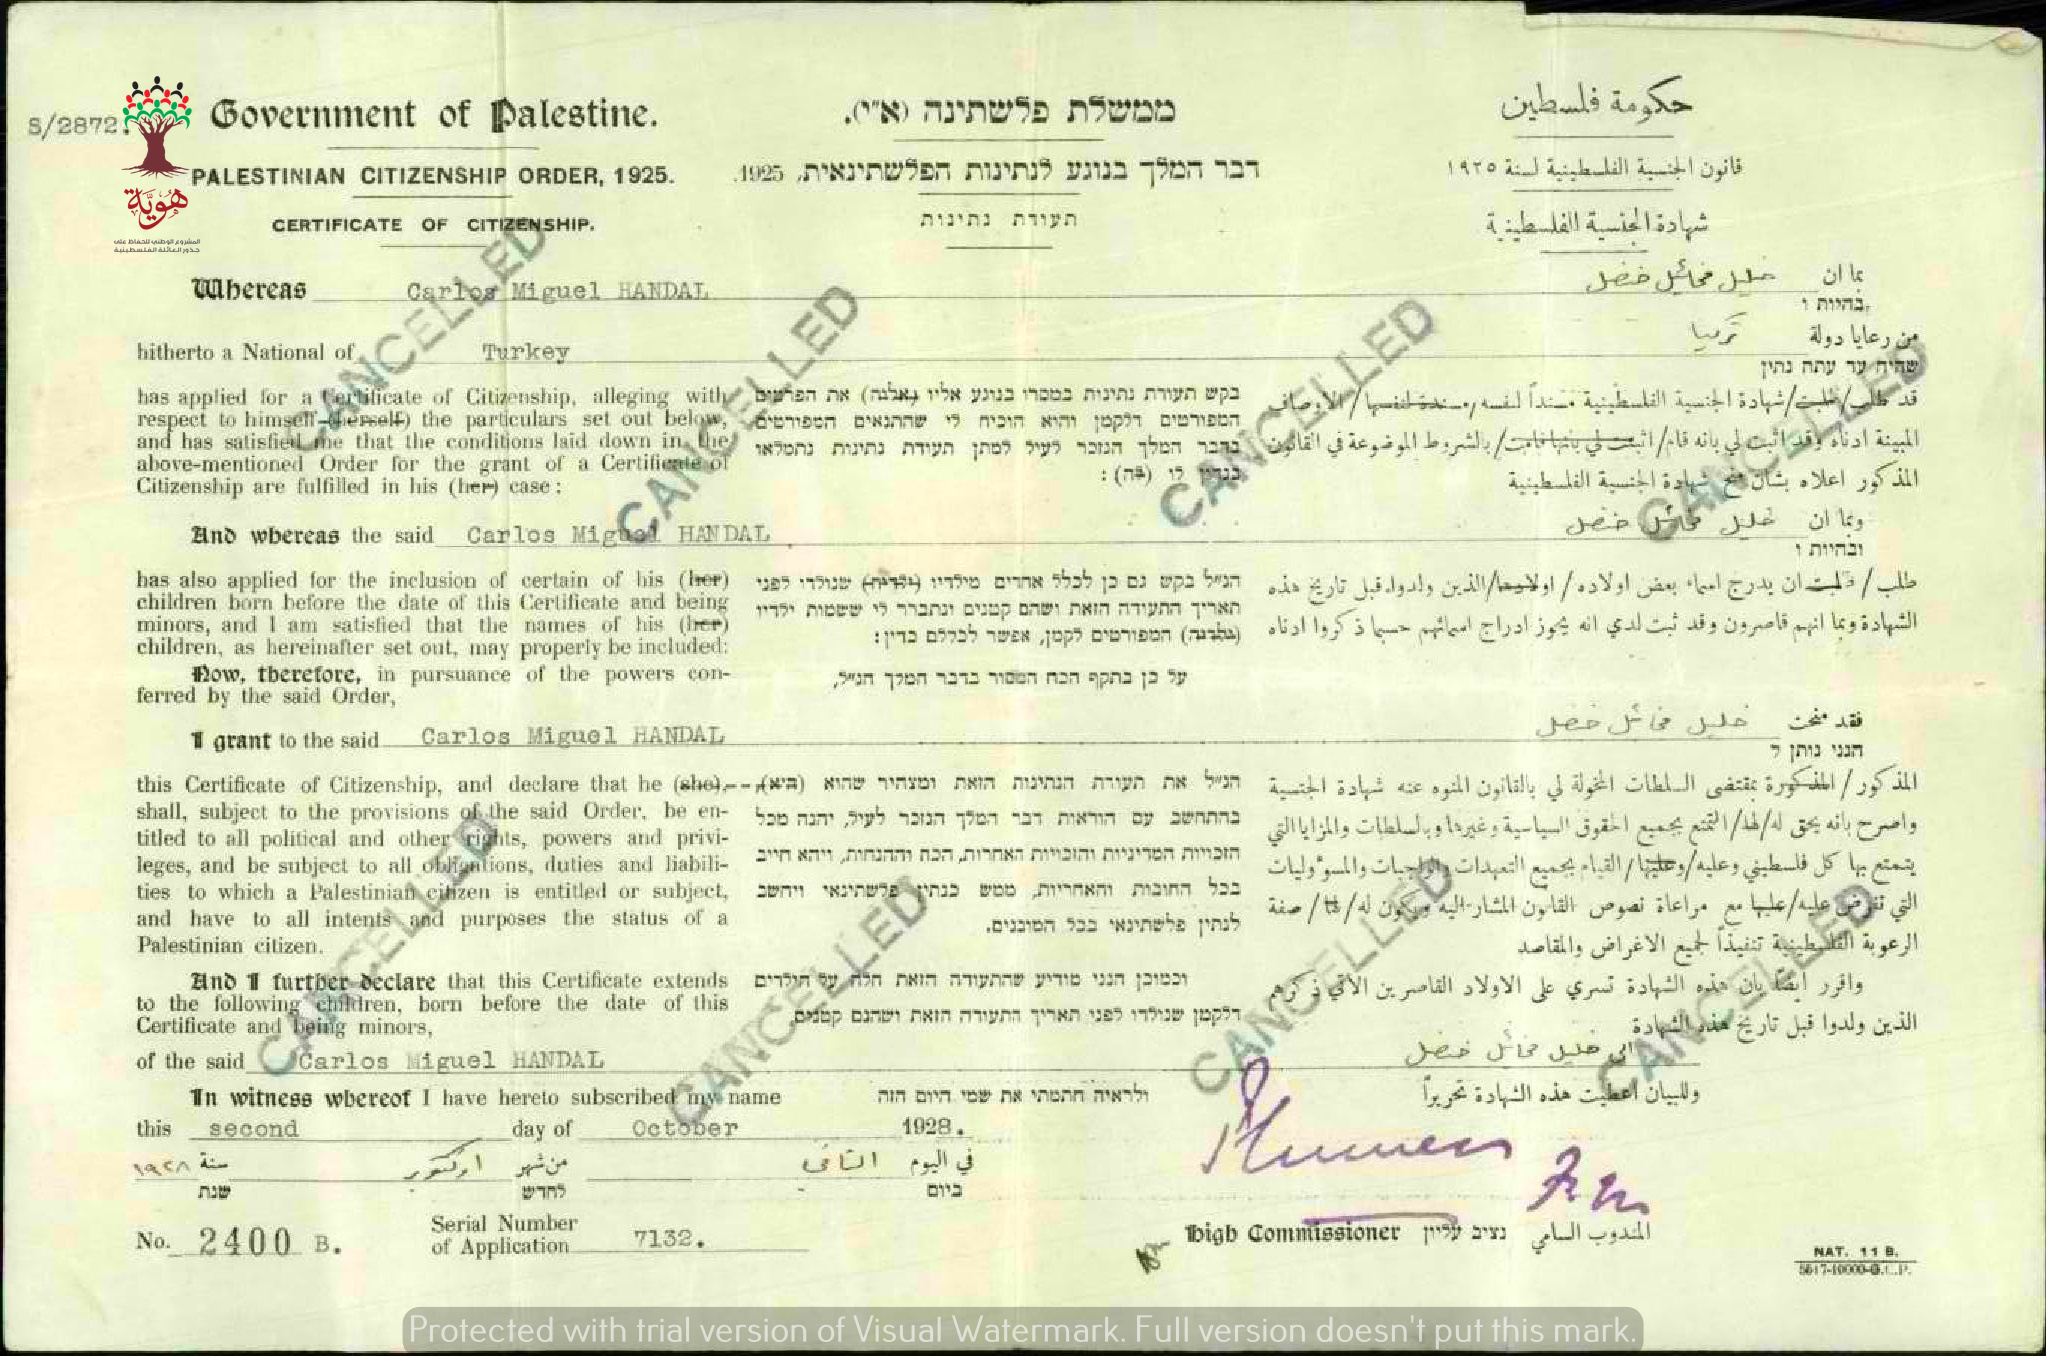 S/2872.
هوية
المشروع الوطني للحفاظ على
جذور العائلة الفلسطينية
Government of Palestine.
PALESTINIAN CITIZENSHIP ORDER, 1925.
CERTIFICATE OF CITIZENSHIP.
ממשלת פלשתינה (א״י).
דבר המלך בנוגע לנתינות הפלשתינאית, 1925.
תעודת נתינות
حكومة فلسطين
قانون الجنسية الفلسطينية لسنة ١٩٢٥
شهادة الجنسية الفلسطينية
Whereas Carlos Miguel HANDAL
hitherto a National of Turkey
has applied for a Certificate of Citizenship, alleging with
respect to himself (herself) the particulars set out below,
and has satisfied me that the conditions laid down in the
above-mentioned Order for the grant of a Certificate of
Citizenship are fulfilled in his (her) case :
And whereas the said Carlos Miguel HANDAL
has also applied for the inclusion of certain of his (her)
children born before the date of this Certificate and being
minors, and I am satisfied that the names of his (her)
children, as hereinafter set out, may properly be included:
Now, therefore, in pursuance of the powers con-
ferred by the said Order,
I grant to the said Carlos Miguel HANDAL
this Certificate of Citizenship, and declare that he (she)
shall, subject to the provisions of the said Order, be en-
titled to all political and other rights, powers and privi-
leges, and be subject to all obligations, duties and liabili-
ties to which a Palestinian citizen is entitled or subject,
and have to all intents and purposes the status of a
Palestinian citizen.
And I further declare that this Certificate extends
to the following children, born before the date of this
Certificate and being minors,
of the said Carlos Miguel HANDAL
In witness whereof I have hereto subscribed my name
this second day of October 1928.
בהיות ו
שהיה עד עתה נתין
בקש תעודת נתינות במסרו בנוגע אליו (אליה) את הפרטים
המפורטים דלקמן והוא הוכיח לי שהתנאים המפורטים
בדבר המלך הנזכר לעיל למתן תעודת נתינות נתמלאו
בנדון לו (לה) :
ובהיות ו
הנ״ל בקש גם כן לכלל אחדים מילדיו (ילדיה) שנולדו לפני
תאריך התעודה הזאת ושהם קטנים ונתברר לי ששמות ילדיו
(ילדיה) המפורטים לקמן, אפשר לכללם כדין :
על כן בתקף הכח המסור בדבר המלך הנ״ל,
הנני נותן ל
הנ״ל את תעודת הנתינות הזאת ומצהיר שהוא (היא)
בהתחשב עם הוראות דבר המלך הנזכר לעיל, יהנה מכל
הזכויות המדיניות והזכויות האחרות, הכח וההנחות, ויהא חייב
בכל החובות והאחריות, ממש כנתין פלשתינאי ויחשב
לנתין פלשתינאי בכל המובנים.
וכמוכן הנני מודיע שהתעודה הזאת חלה על הילדים
דלקמן שנולדו לפני תאריך התעודה הזאת ושהנם קטנים,
ולראיה חתמתי את שמי היום הזה
بما ان خليل مخائيل خنضل
من رعايا دولة تركيا
قد طلب/طلبت/شهادة الجنسية الفلسطينية مسنداً لنفسه/مسندة لنفسها/الأوصاف
المبينة ادناه وقد اثبت لي بانه قام/اثبتت لي بانها قامت/بالشروط الموضوعة في القانون
المذكور اعلاه بشأن منح شهادة الجنسية الفلسطينية
وبما ان خليل مخائيل خنضل
طلب/طلبت ان يدرج اسماء بعض اولاده/اولادها/الذين ولدوا قبل تاريخ هذه
الشهادة وبما انهم قاصرون وقد ثبت لدي انه يجوز ادراج اسمائهم حسبما ذكروا ادناه
فقد منحت خليل مخائيل خنضل
المذكور/المذكورة بمقتضى السلطات المخولة لي بالقانون المنوه عنه شهادة الجنسية
واصرح بانه يحق له/لها/التمتع بجميع الحقوق السياسية وغيرها وبالسلطات والمزايا التي
يتمتع بها كل فلسطيني وعليه/وعليها/القيام بجميع التعهدات والواجبات والمسؤوليات
التي تفرض عليه/عليها مع مراعاة نصوص القانون المشار اليه ويكون له/لها/صفة
الرعوية الفلسطينية تنفيذاً لجميع الاغراض والمقاصد
واقرر ايضاً بان هذه الشهادة تسري على الاولاد القاصرين الآتي ذكرهم
الذين ولدوا قبل تاريخ هذه الشهادة
الى خليل مخائيل خنضل
وللبيان اعطيت هذه الشهادة تحريراً
في اليوم الثاني من شهر اوكتوبر سنة ١٩٢٨
ביום לחדש שנת
No. 2400 B. Serial Number
of Application 7132.
High Commissioner נציב עליון المندوب السامي
NAT. 11 B.
5517-10000-G.C.P.
CANCELLED
CANCELLED
CANCELLED
CANCELLED
CANCELLED
CANCELLED
CANCELLED
CANCELLED
Protected with trial version of Visual Watermark. Full version doesn't put this mark.